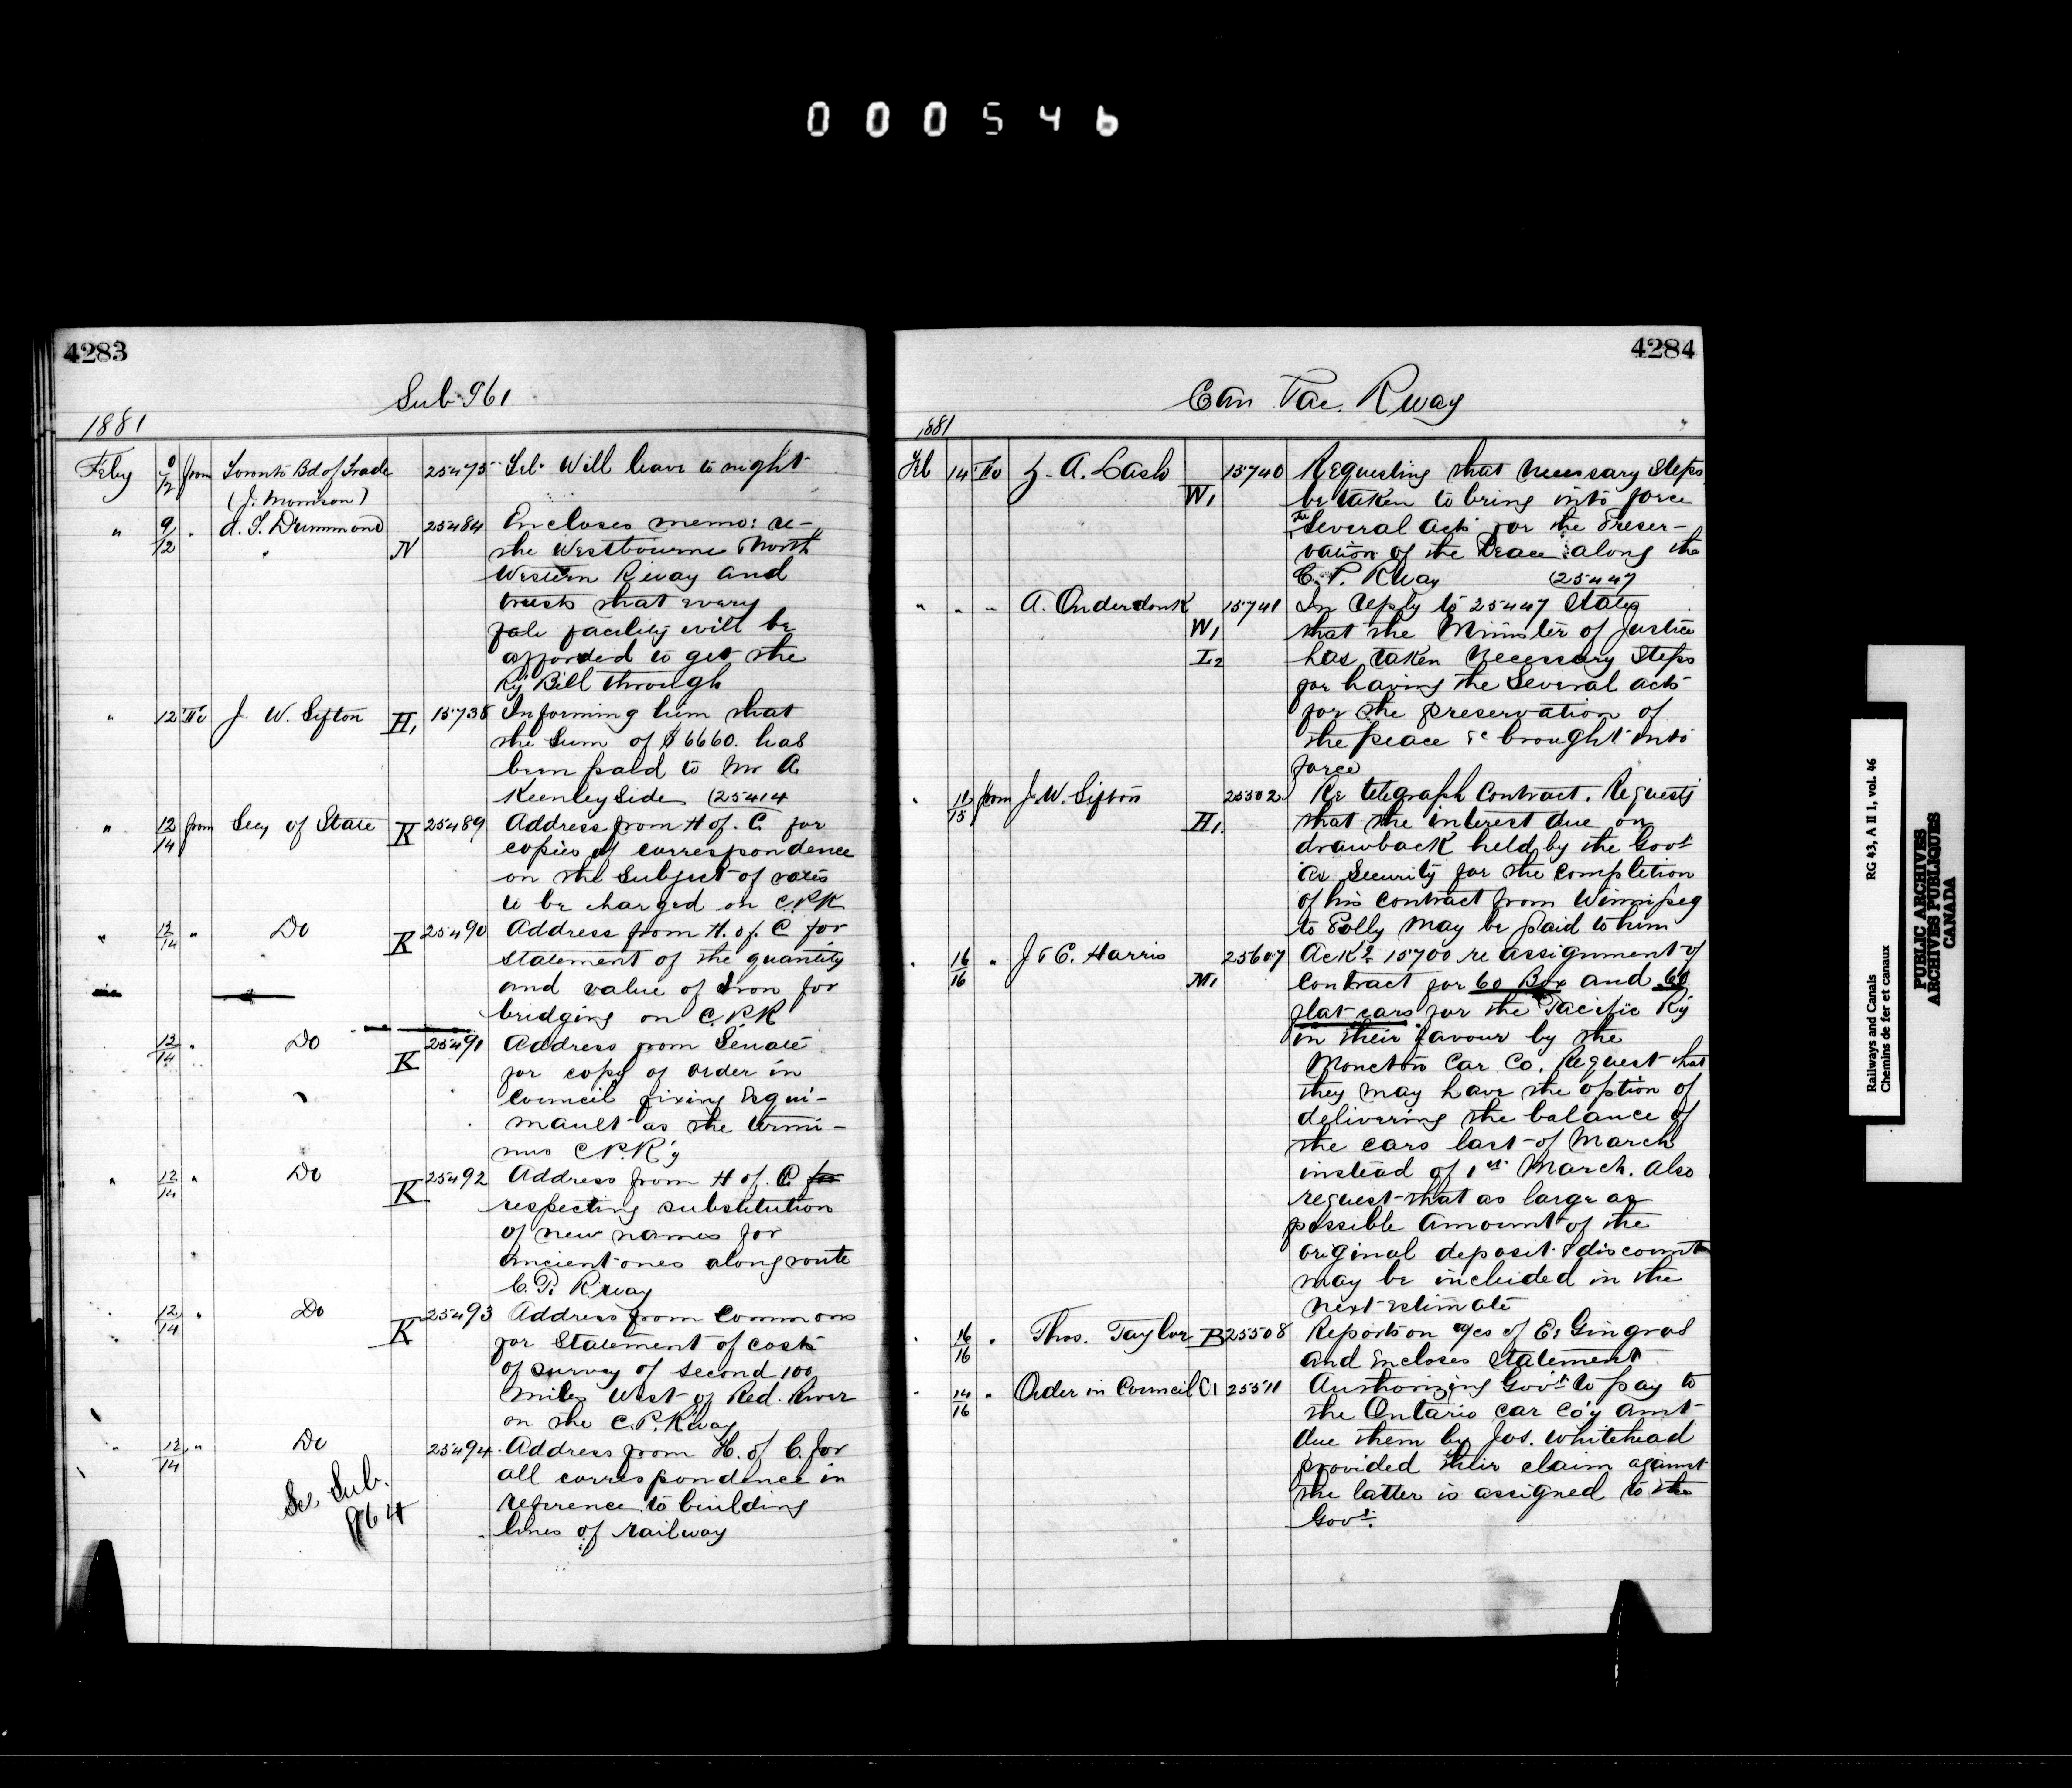 000546
4283
Sub 961
1881
Feby 9/12 from Toronto Bd of Trade 25475 Tel. Will leave to night
(J. Morrison)
" 9/12 " A. T. Drummond 25484 Encloses memo: re-
N the Westbourne North
Western Rway and
trusts that every
facility will be
afforded to get the
Ry Bill through
" 12 To J. W. Sifton H1 15738 Informing him that
the Sum of $6660. has
been paid to Mr A.
Keenleyside (25414
" 12/14 from Secy of State K 25489 Address from H of. C. for
copies of correspondence
on the Subject of rates
to be charged on C.P.R
" 12/14 " Do K 25490 Address from H. of. C for
statement of the quantity
and value of Iron for
bridging on C.P.R
12/14 " Do K 25491 Address from Senate
for copy of order in
Council fixing Esqui-
mault as the termi-
nus C.P.R'y
" 12/14 " Do K 25492 Address from H of. C. for
respecting substitution
of new names for
ancient ones along route
C. P. Rway
" 12/14 " Do K 25493 Address from Commons
for Statement of cost
of survey of second 100
miles West of Red. River
on the C.P. Rway
" 12/14 " Do 25494 Address from H. of C. for
all correspondence in
reference to building
lines of railway
See Sub.
964
4284
Can Pac. Rway
1881
Feb 14 To Z. A. Lash W1 15740 Requesting that necessary steps
be taken to bring into force
the Several acts for the Preser-
vation of the Peace along the
C. P. Rway (25447
" " " A. Onderdonk 15741 In reply to 25447 States
W1 that the Minister of Justice
I2 has taken necessary steps
for having the several acts
for the preservation of
the peace &c brought into
force
" 11/15 from J. W. Sifton 25502 Re telegraph Contract. Requests
H1. that the interest due on
drawback held by the Govt
as Security for the completion
of his contract from Winnipeg
to Pelly may be paid to him
" 16/16 " J & C. Harris 25607 Ackg 15700 re assignment of
M1 contract for 60 Box and 60
flat cars for the Pacific Ry
in their favour by the
Moncton Car Co. Request that
they may have the option of
delivering the balance of
the cars last of March
instead of 1st March. Also
request that as large as
possible amount of the
original deposit & discount
may be included in the
next estimate
" 16/16 " Thos. Taylor B 25508 Reports on a/cs of E. Gingras
and encloses statement
" 14/16 " Order in Council C1 25511 Authorizing Govt to pay to
the Ontario Car Co'y amt
due them by Jos. Whitehead
provided their claim against
the latter is assigned to the
Govt.
Railways and Canals RG 43, A II 1, vol. 46
Chemins de fer et canaux
PUBLIC ARCHIVES
ARCHIVES PUBLIQUES
CANADA